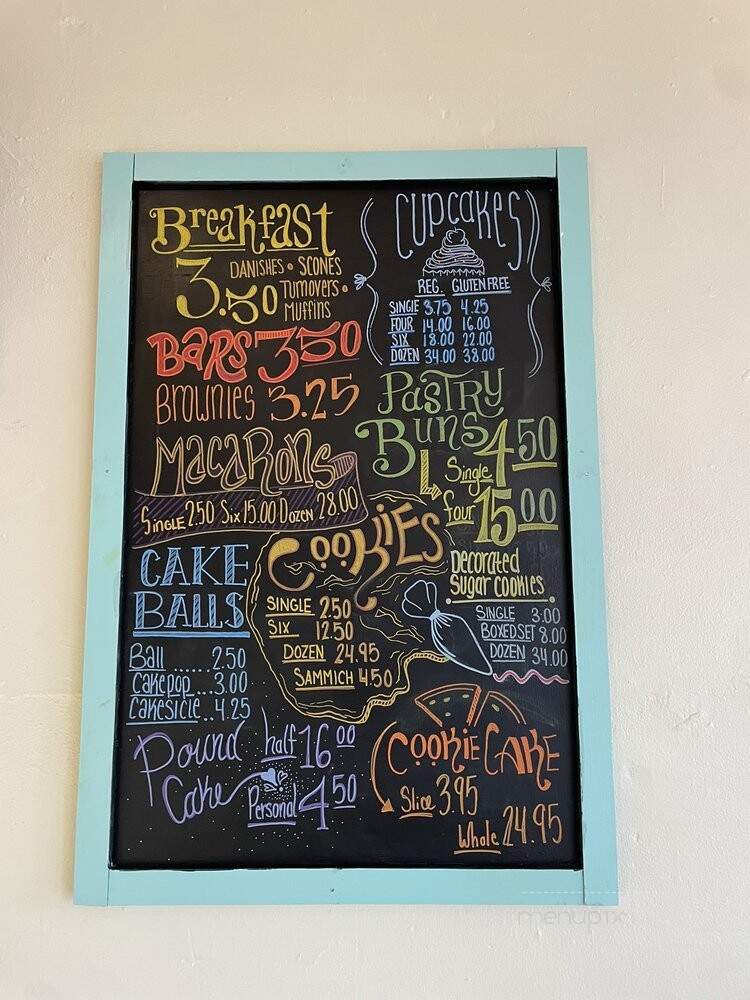 Breakfast
3.50
DANISHES • SCONES
Turnovers •
Muffins
BARS 350
Brownies 3.25
Macarons
SINGLE 2.50 Six 15.00 Dozen 28.00
CAKE
BALLS
Ball ...... 2.50
Cakepop ... 3.00
Cakesicle .. 4.25
Pound
Cake
half 16 00
Personal 4 50
Cupcakes
REG. GLUTEN FREE
SINGLE 3.75 4.25
FOUR 14.00 16.00
SIX 18.00 22.00
DOZEN 34.00 38.00
PASTRY
Buns 4 50
Single
four 15 00
COOKIES
SINGLE 2.50
SIX 12.50
DOZEN 24.95
SAMMICH 4.50
Decorated
Sugar cookies
SINGLE 3.00
BOXED SET 8.00
DOZEN 34.00
COOKIE CAKE
Slice 3.95
Whole 24.95
menupix